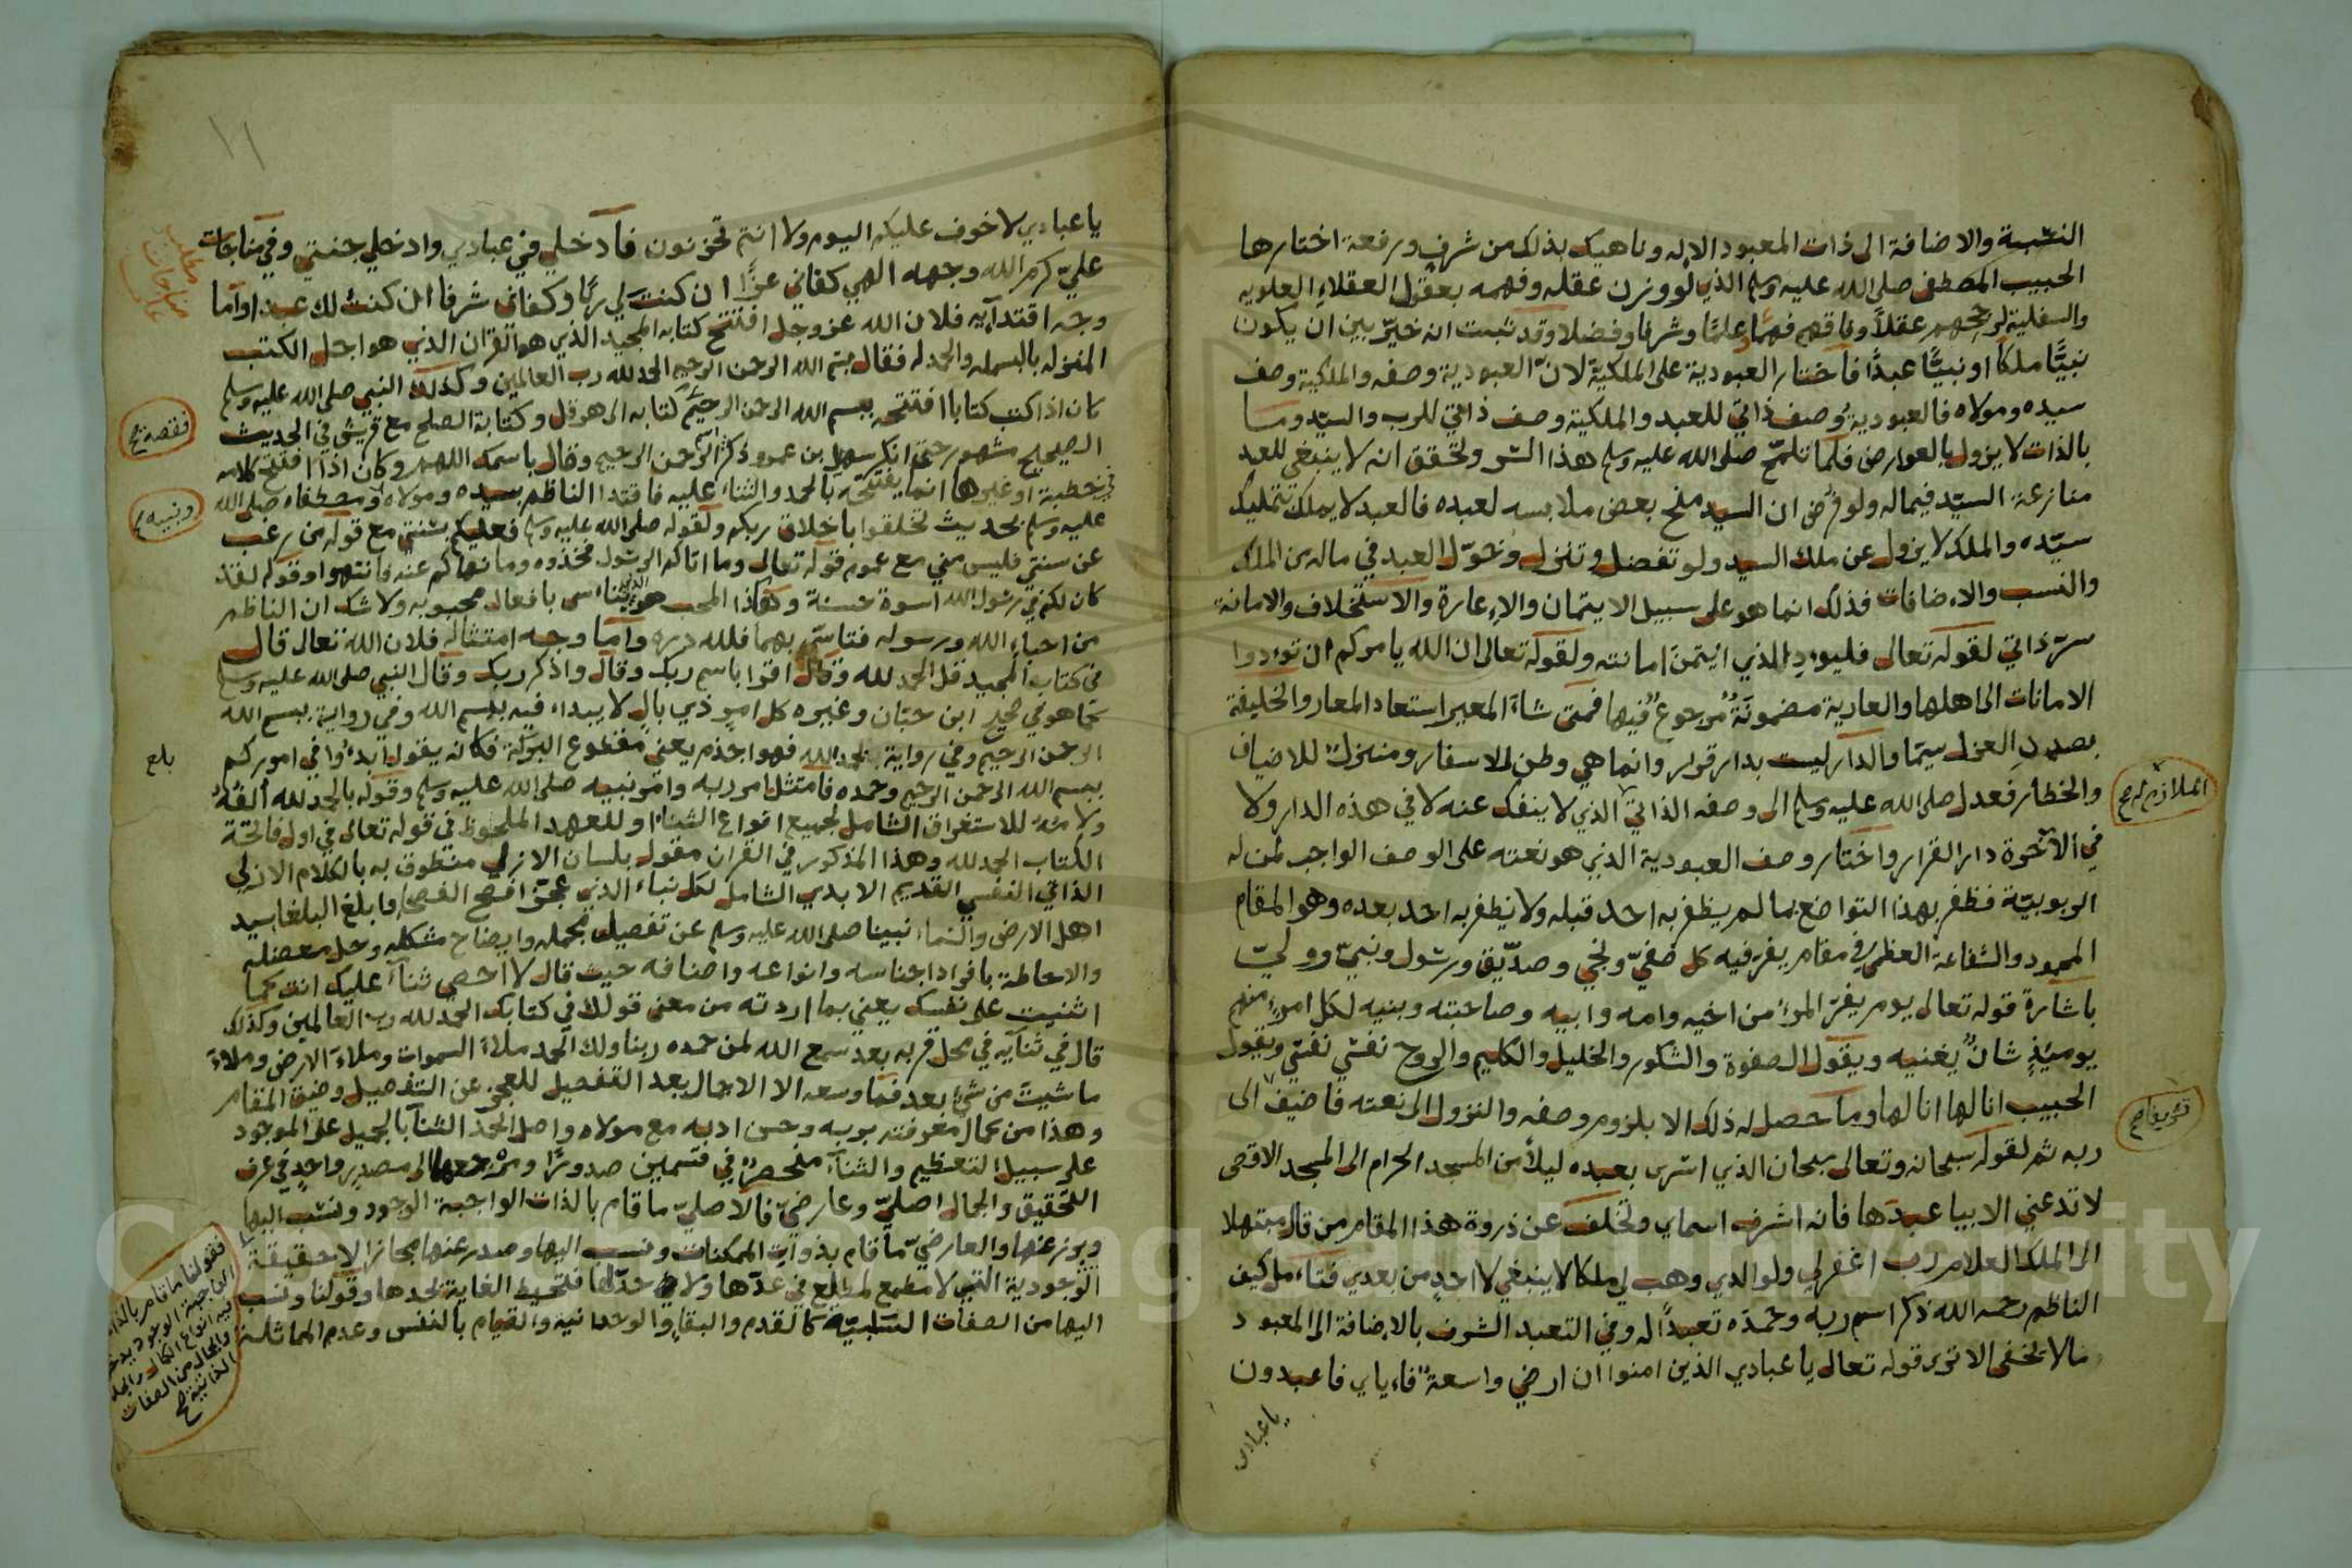 النسبة والاضافة الى ذات المعبود الاله وناهيك بذلك من شرف ورفعة اختارها
الحبيب المصطفى صلى الله عليه وسلم الذي لو وزن عقله وفهمه بعقول العقلاء العلويه
والسفلية لرجحهم عقلاً وفاقهم فهمًا وعلمًا وشرفا وفضلا وقد ثبت انه خيّر بين ان يكون
نبيًّا ملكًا او نبيًّا عبدًا فاختار العبودية على الملكية لانّ العبودية وصفه والملكية وصف
سيده ومولاه فالعبودية وصف ذاتي للعبد والملكية وصف ذاتي للرب والسيّد وما
بالذات لا يزول بالعوارض فلما تلمّح صلى الله عليه وسلم هذا السر وتحقق انه لا ينبغي للعبد
منازعة السيّد فيما له ولو فرض ان السيد منح بعض ملابسه لعبده فالعبد لا يملك بتمليك
سيّده والملك لا يزول عن ملك السيد ولو تفضل وتنزل وخوّل العبد في ماله من الملك
والنسب والاضافات فذلك انما هو على سبيل الايتمان والاعارة والاستخلاف والامانة
سرّ ذاتي لقوله تعالى فليود الذي ايتمن امانته ولقوله تعالى ان الله يامركم ان تودوا
الامانات الى اهلها والعارية مضمونة مرجوع فيها فمتى شاء المعير استعاد المعار والخليفة
بصدد العزل سيّما والدار ليست بدار قرار وانما هي وطن الاسفار ومنزل للاضياف
والخطار فعدل صلى الله عليه وسلم الى وصفه الذاتي الذي لا ينفك عنه لا في هذه الدار ولا
الملازم له صح
في الآخرة دار القرار واختار وصف العبودية الذي هو نعته على الوصف الواجب لمن له
الربوبيّة فظفر بهذا التواضع بما لم يظفر به احد قبله ولا يظفر به احد بعده وهو المقام
المحمود والشفاعة العظمى في مقام يفر فيه كل صفيّ ونجي وصدّيق ورسول ونبيّ وولي
باشارة قوله تعالى يوم يفر المرء من اخيه وامه وابيه وصاحبته وبنيه لكل امرء منهم
يوميذٍ شان يغنيه ويقول الصفوة والشكور والخليل والكليم والروح نفسي نفسي ويقول
الحبيب انا لها انا لها وما حصل له ذلك الا بلزوم وصفه والنزول الى نعته فاضيف الى
تشريفا صح
ربه ثم لقوله سبحانه وتعالى سبحان الذي اسرى بعبده ليلاً من المسجد الحرام الى المسجد الاقصى
لا تدعني الا بيا عبدها فانه اشرف اسماي وتخلف عن ذروة هذا المقام من قال مبتهلا
الى الملك العلام رب اغفر لي ولوالدي وهب لي ملكا لا ينبغي لاحد من بعدي فتامل كيف
الناظم رحمه الله ذكر اسم ربه وحمده تعبداً له وفي التعبد الشرف بالاضافة الى المعبود
ما لا يخفى الا ترى قوله تعالى يا عبادي الذين امنوا ان ارضي واسعة فاياي فاعبدون
يا عبادي
١١
يا عبادي لا خوف عليكم اليوم ولا انتم تحزنون فادخلي في عبادي وادخلي جنتي وفي مناجات
عليّ كرم الله وجهه الهي كفاني عزًّا ان كنت لي ربًّا وكفاني شرفا ان كنت لك عبدا واما
وجه اقتدايه فلان الله عز وجل افتتح كتابه المجيد الذي هو القران الذي هو اجل الكتب
المنزله بالبسمله والحمدله فقال بسم الله الرحمن الرحيم الحمد لله رب العالمين وكذلك النبي صلى الله عليه وسلم
كان اذا كتب كتابا افتتحه ببسم الله الرحمن الرحيم ككتابه الى هرقل وكتابة الصلح مع قريش في الحديث
الصحيح مشهور حتى انكر سهيل بن عمرو ذكر الرحمن الرحيم وقال باسمك اللهم وكان اذا افتتح كلامه
في خطبة او غيرها انما يفتتحه بالحمد والثناء عليه فاقتدا الناظم بسيده ومولاه ومصطفاه صلى الله
ونبيه صح
عليه وسلم بحديث تخلقوا باخلاق ربكم ولقوله صلى الله عليه وسلم فعليكم بسنتي مع قوله من رغب
عن سنتي فليس مني مع عموم قوله تعالى وما اتاكم الرسول فخذوه وما نهاكم عنه فانتهوا وقوله لقد
كان لكم في رسول الله اسوة حسنة وهكذا المحب هو الذي يتاسى بافعال محبوبه ولا شك ان الناظم
من احباء الله ورسوله فتاسّى بهما فلله دره واما وجه امتثاله فلان الله تعالى قال
في كتابه المجيد قل الحمد لله وقال اقرا باسم ربك وقال واذكر ربك وقال النبي صلى الله عليه وسلم
كما هو في صحيح ابن حبّان وغيره كل امر ذي بال لا يبداء فيه ببسم الله وفي رواية ببسم الله
الرحمن الرحيم وفي رواية بحمد الله فهو اجذم يعني مقطوع البركة فكانه يقول ابدؤا في اموركم
بلغ
ببسم الله الرحمن الرحيم وحمده فامتثل امر ربه وامر نبيه صلى الله عليه وسلم وقوله بالحمد لله الفه
ولامه للاستغراق الشامل لجميع انواع الثناء او للعهد الملحوظ في قوله تعالى في اول فاتحة
الكتاب الحمد لله وهذا المذكور في القران مقول بلسان الازلي منطوق به بالكلام الازلي
الذاتي النفسي القديم الابدي الشامل لكل ثناء الذي عجز افصح الفصحا وابلغ البلغا سيد
اهل الارض والسماء نبينا صلى الله عليه وسلم عن تفصيل مجمله وايضاح مشكله وحل معضله
والاحاطة بافراد اجناسه وانواعه واصنافه حيث قال لا احصي ثناء عليك انت كما
اثنيت على نفسك يعني بما اردته من معنى قولك في كتابك الحمد لله رب العالمين وكذلك
قال في ثنايه في محل قربه بعد سمع الله لمن حمده ربنا ولك الحمد ملاء السموات وملاء الارض وملاء
ما شيت من شيء بعد فما وسعه الا الاجمال بعد التفصيل للعجز عن التفصيل وضيق المقام
وهذا من كمال معرفته بربه وحسن ادبه مع مولاه واصل الحمد الثنا بالجميل على الموجود
على سبيل التعظيم والثناء منحصر في قسمين صدورًا ومرجعها الى مصدر واحد في عرف
التحقيق والجمال اصليّ وعارضيّ فالاصليّ ما قام بالذات الواجبة الوجود ونسب اليها
وبرز عنها والعارضيّ ما قام بذوات الممكنات ونسب اليها وصدر عنها مجازا لا حقيقة
الوجودية التي لا مطمع لمطلع في عدّها ولا حدّ لها فتحيط الغاية بحدها وقولنا ونسب
اليها من الصفات السلبيّة كالقدم والبقا والوحدانيه والقيام بالنفس وعدم المماثلة
فقولنا ما قام بالذات
الواجبة الوجود يدخل
فيه انواع الكمال والجلال
والجمال من الصفات
الذاتية صح